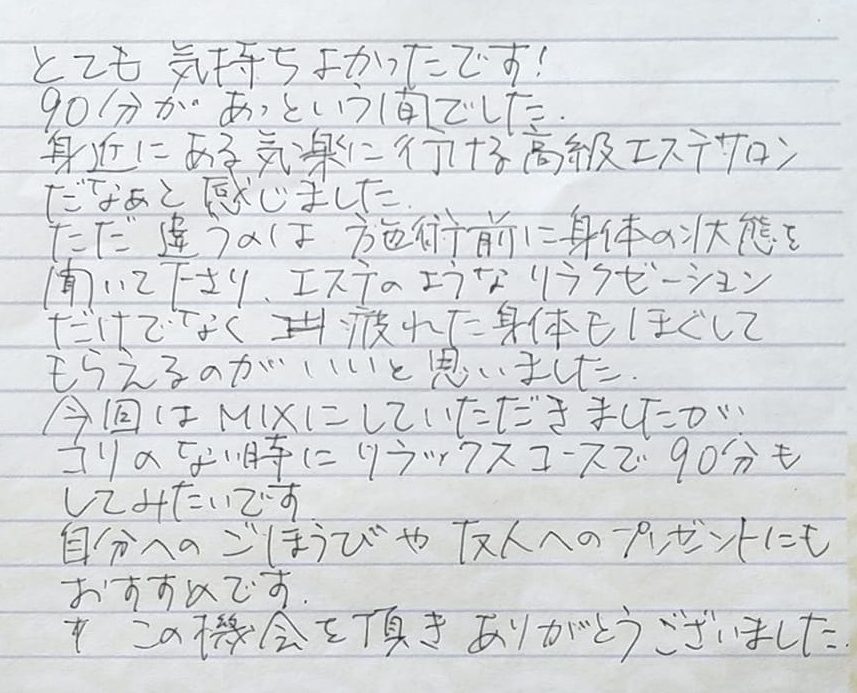 とても気持ちよかったです!
90分があっという間でした.
身近にある気楽に行ける高級エステサロン
だなぁと感じました.
ただ違うのは施術前に身体の状態を
聞いて下さり、エステのようなリラクゼーション
だけでなく疲れた身体もほぐして
もらえるのがいいと思いました.
今回はMIXにしていただきましたが
コリのない時にリラックスコースで90分も
してみたいです
自分へのごほうびや友人へのプレゼントにも
おすすめです.
この機会を頂きありがとうございました.